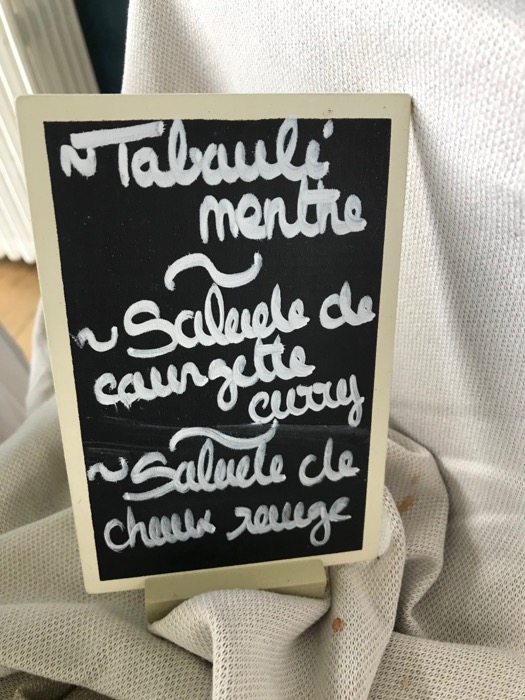 ~ Tabouli
menthe
~
~ Salade de
courgette
curry
~
~ Salade de
choux rouge